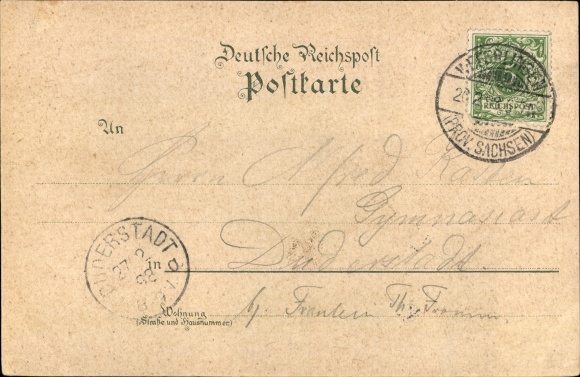 Deutsche Reichspost
Postkarte
REICHSPOST
(PROV. SACHSEN)
An
Herrn Alfred
Gymnasiast
DUDERSTADT
27 2
98
in Duderstadt
b/ Fräulein Th. Fromm
Wohnung
(Straße und Hausnummer)